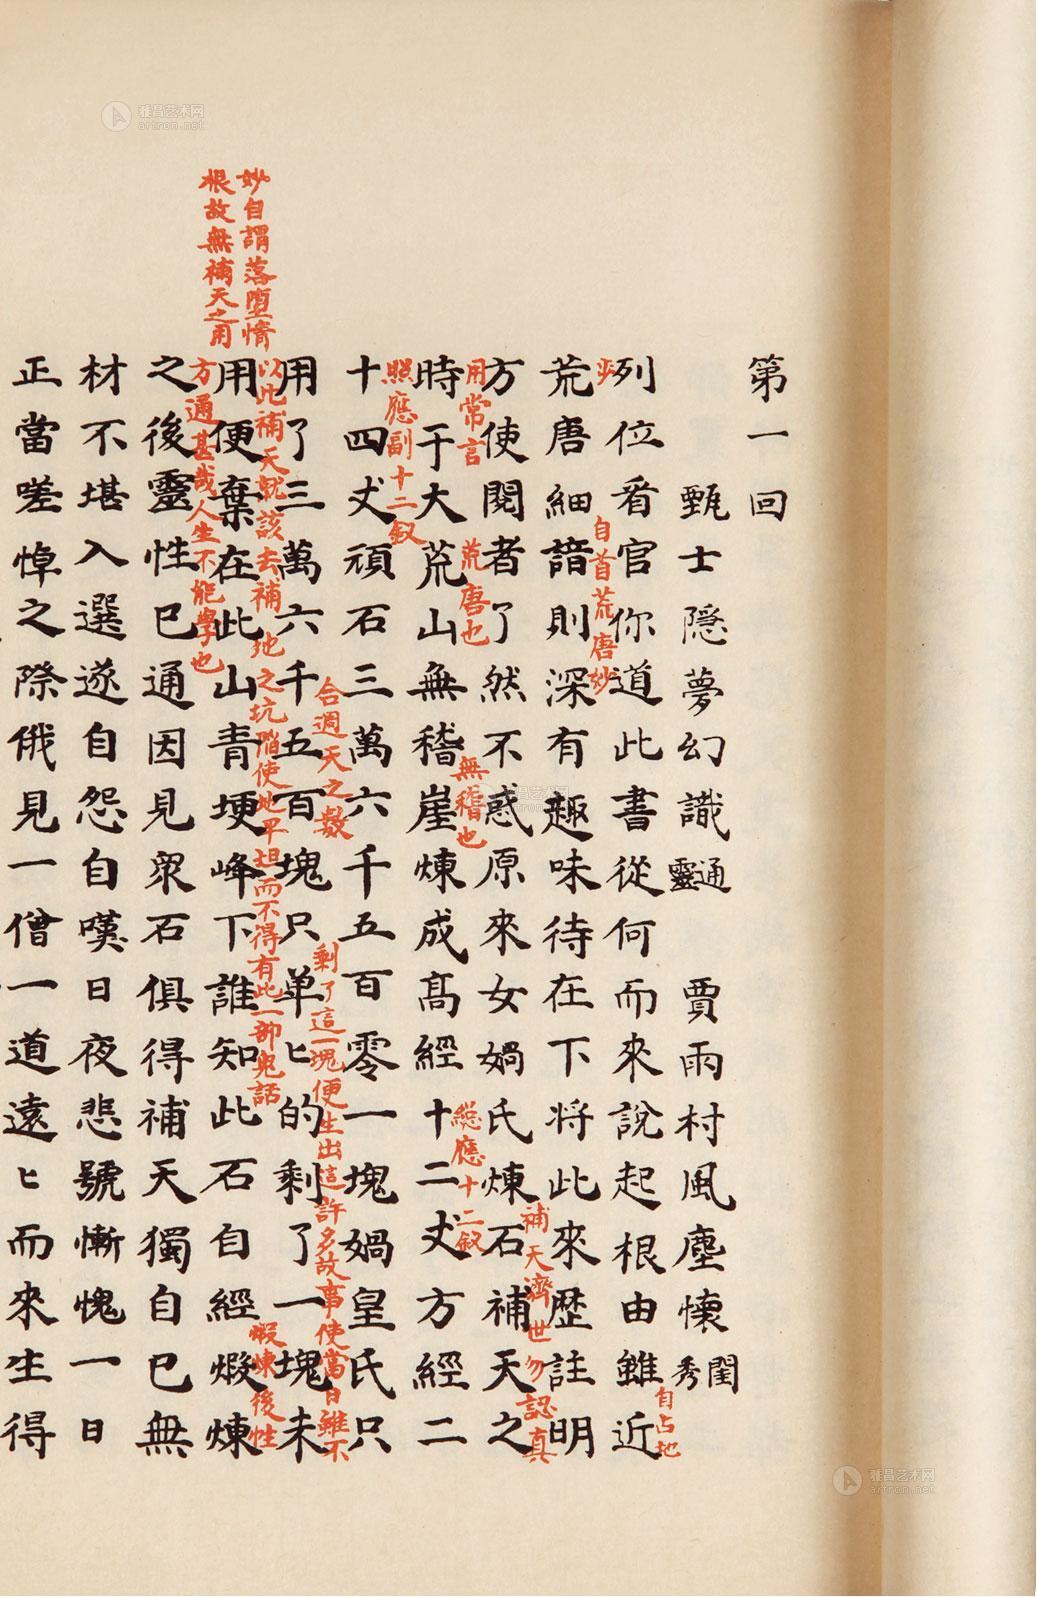 第一回
甄士隱夢幻識通靈　賈雨村風塵懷閨秀
列位看官你道此書從何而來說起根由雖近
自占地
步
自首荒唐妙
荒唐細諳則深有趣味待在下將此來歷註明
方使閱者了然不惑原來女媧氏煉石補天之
補天濟世勿認真
用常言
時于大荒山無稽崖煉成高經十二丈方經二
荒唐也
無稽也
總應十二釵
照應副十二釵
十四丈頑石三萬六千五百零一塊媧皇氏只
合週天之數
用了三萬六千五百塊只单匕的剩了一塊未
剩了這一塊便生出這許多故事使當日雖不
以此補天就該去補地之坑陷使地平坦而不得有此一部鬼話
用便棄在此山青埂峰下誰知此石自經煅煉
妙自謂落墮情
根故無補天之用
煅煉後性
方通甚哉人生不能學也
之後靈性已通因見衆石俱得補天獨自已無
材不堪入選遂自怨自嘆日夜悲號慚愧一日
正當嗟悼之際俄見一僧一道遠匕而來生得
雅昌艺术网
artron.net
雅昌艺术网
artron.net